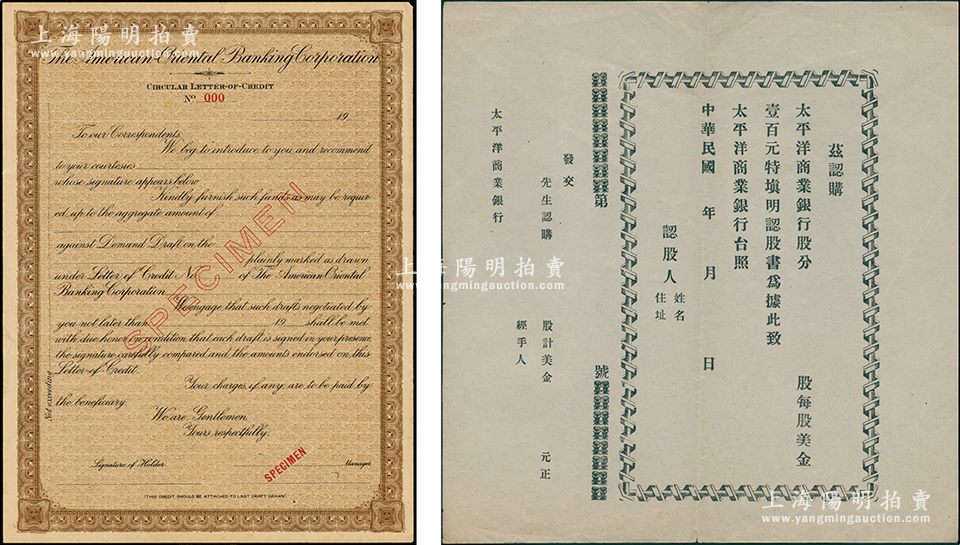 上海陽明拍賣
www.yangmingauction.com
The American Oriental Banking Corporation
CIRCULAR LETTER-OF-CREDIT
No. 000
19
To our Correspondents
We beg to introduce to you and recommend
to your courtesies
whose signature appears below
Kindly furnish such funds as may be requir
ed up to the aggregate amount of
against Demand Draft on the
plainly marked as drawn
under Letter of Credit No. of The American Oriental
Banking Corporation
We engage that such drafts negotiated by
you not later than 19 shall be met
with due honor on condition that each draft is signed in your presence
the signature carefully compared and the amounts endorsed on this
Letter of Credit.
Your charges, if any, are to be paid by
the beneficiary.
We are, Gentlemen,
Yours respectfully,
Signature of Holder Manager
(THIS CREDIT SHOULD BE ATTACHED TO LAST DRAFT DRAWN)
Not exceeding
SPECIMEN
SPECIMEN
上海陽明拍賣
www.yangmingauction.com
茲認購
太平洋商業銀行股分 股每股美金
壹百元特填明認股書爲據此致
太平洋商業銀行台照
中華民國 年 月 日
認股人 姓名 住址
第 號
發交
先生認購 股計美金 元正
太平洋商業銀行 經手人
上海陽明拍賣
www.yangmingauction.com